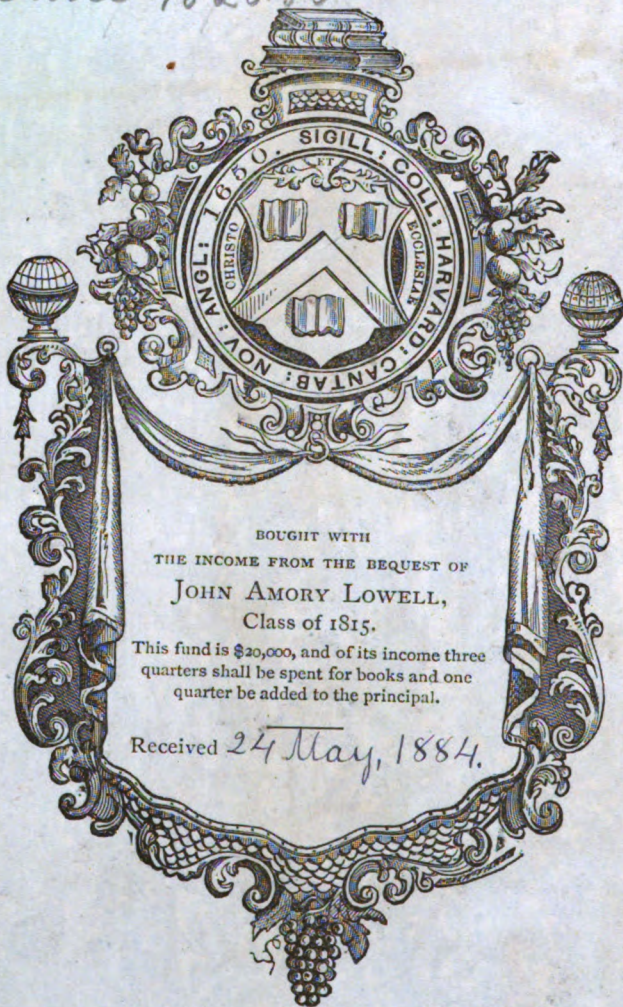 SIGILL: COLL: HARVARD: CANTAB: NOV: ANGL: 1650.
ET
CHRISTO
ECCLESIAE
BOUGHT WITH
THE INCOME FROM THE BEQUEST OF
JOHN AMORY LOWELL,
Class of 1815.
This fund is $20,000, and of its income three
quarters shall be spent for books and one
quarter be added to the principal.
Received 24 May, 1884.